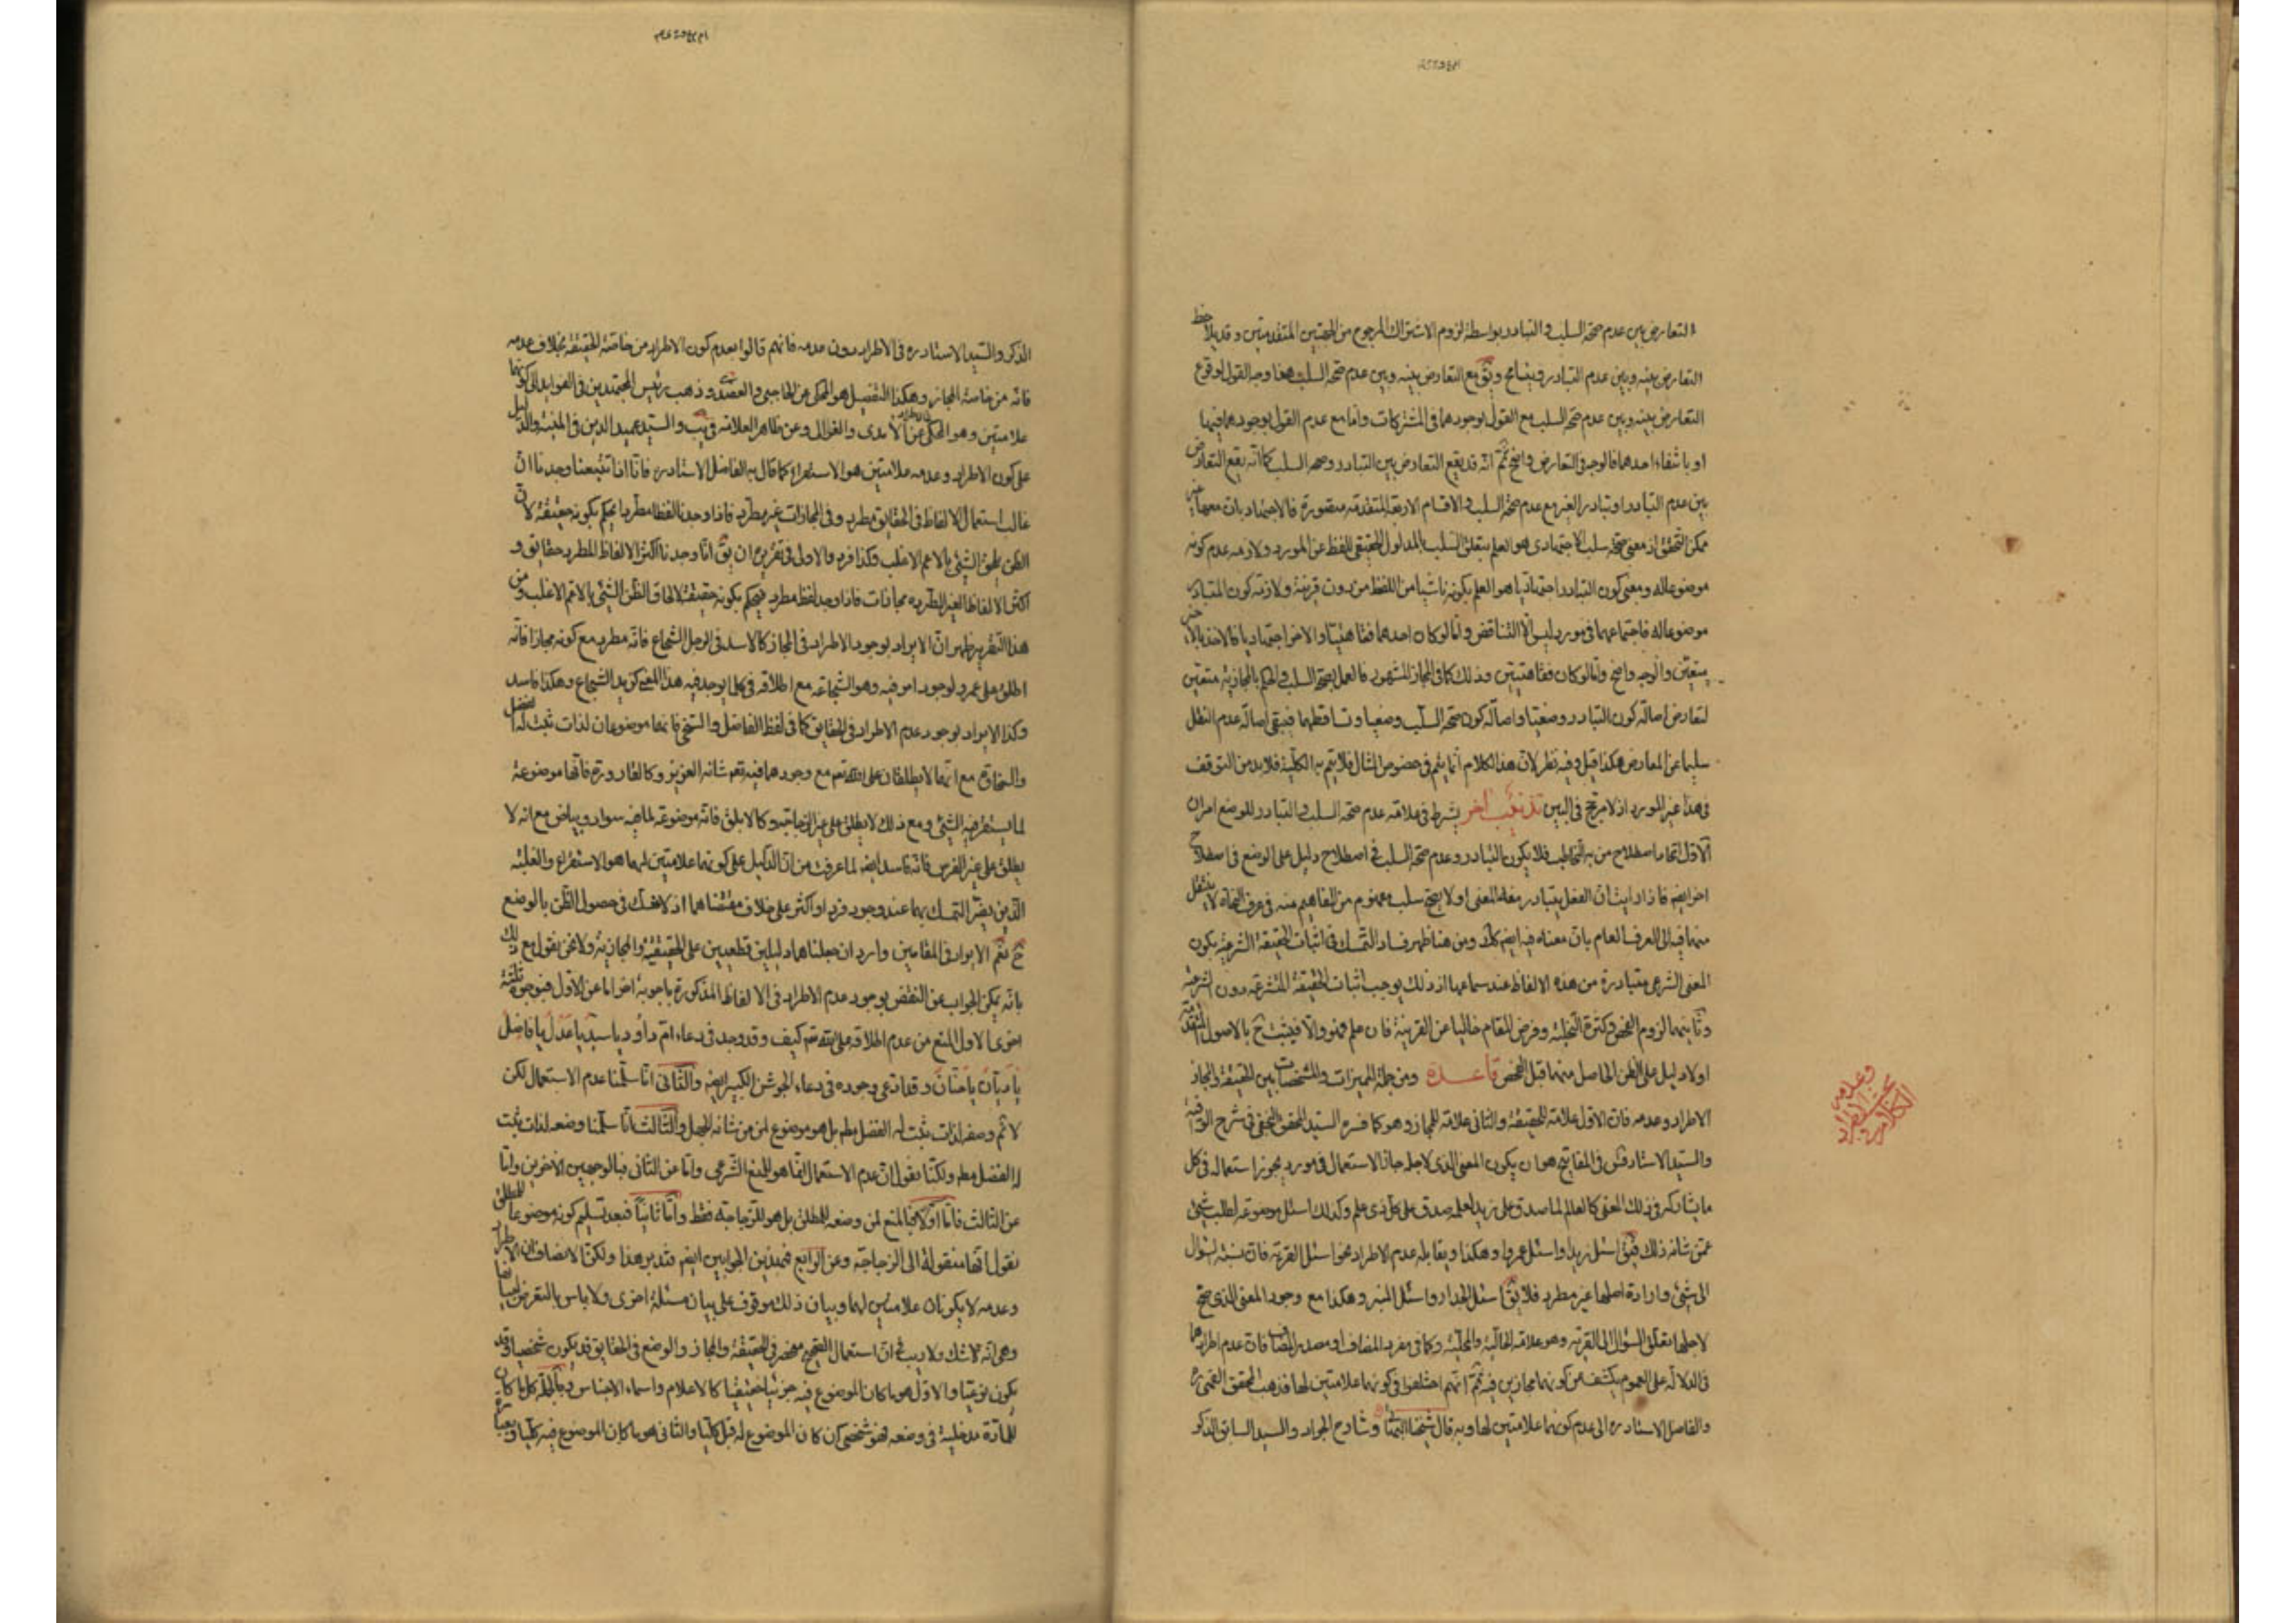 التعارض بين عدم صحة السلب والتبادر بواسطة لزوم الاشتراك المرجوح من الجهتين المتقدمتين وقد يلاحظ
التعارض بينه وبين عدم التبادر وبق مع التعارض بينه وبين عدم صحة السلب هذا وجه القول بوقوع
التعارض بينه وبين عدم صحة السلب مع القول بوجودهما في المشتركات واما مع عدم القول بوجودهما فيها
او بانتفاء احدهما فالوجه في التعارض واضح ثم انه قد يقع التعارض بين التبادر وصحة السلب كما انه يقع التعارض
بين عدم التبادر او تبادر الغير مع عدم صحة السلب والاقسام الاربعة المتقدمة متصورة فالاجتهاديان معهما غير
ممكن التحقق اذ معنى صحة سلب الاجتهادى هو العلم بتعلق السلب بالمدلول الحقيقي للفظ عن المورد ولازمه عدم كونه
موضوعا له ومعنى كون التبادر اجتهاديا هو العلم بكونه ناشيا من اللفظ من دون قرينة ولازمه كون المتبادر
موضوعا له فاجتماعهما في مورد ليس الا التناقض واما لو كان احدهما فقاهتيا والاخر اجتهاديا فالاخذ بالاخر
متعين والوجه واضح واما لو كان فقاهتيين وذلك كما في المجاز المشهور فالعمل بصحة السلب والحكم بالمجازية متعين
لتعارض اصالة كون التبادر وضعيا واصالة كون صحة السلب وضعيا وتساقطهما فيبقى اصالة عدم النقل
سليما عن المعارض هكذا قيل وفيه نظر لان هذا الكلام انما يتم في خصوص المثال فلا يتم به الكلية فلا بد من التوقف
في هذا غير المورد اذ لا مرجح في البين تذنيب اخر يشترط في علامة عدم صحة السلب والتبادر للوضع امران
الاول اتحاد اصطلاح من به التخاطب فلا يكون التبادر وعدم صحة السلب في اصطلاح دليل على الوضع في اصطلاح
اخر ايضا فاذا رايت ان الفعل يتبادر منه المعنى او لا يصح سلب مفهوم من المفاهيم منه في عرف النحاة لا ينتقل
منها فيه الى العرف العام بان معناه فيه ايضم كك ومن هنا ظهر فساد التمسك في اثبات الحقيقة الشرعية بكون
المعنى الشرعي متبادرة من هذه الالفاظ عند سماعها اذ ذلك يوجب اثبات الحقيقة المتشرعة دون الشرعية
وثانيهما لزوم الفحص وكثرة التخلية وفرض المقام خاليا عن القرينة فان علم فهو والا فيثبت ح بالاصول المتقدمة
اولا دليل على الظن الحاصل منهما قبل الفحص قاعدة ومن جملة المميزات والمشخصات بين الحقيقة والمجاز
الاطراد وعدمه فان الاول علامة للحقيقة والثانى علامة للمجاز وهو كما فسره السيد المحقق النجفي في شرح الوافية
والسيد الاستاد في المفاتيح هو ان يكون المعنى الذى لاجله جاز الاستعمال في مورد يجوز استعماله في كل
ما يشاركه في ذلك المعنى كالعالم لما صدق على زيد لعلمه صدق على كل ذى علم وكذلك اسئل موضوعة لطلب شيئ
عمن شانه ذلك فيق اسئل زيدا واسئل عمروا وهكذا ويقابله عدم الاطراد نحو اسئل القرية فان نسبة السؤال
الى شيئ وارادة اهلها غير مطرد فلا يق اسئل الجدار واسئل المنبر وهكذا مع وجود المعنى الذى صح
لاجلها تعلق السؤال الى القرية وهو علاقة الحالية والمحلية وكما في مفرد المضاف او مصدر المضاف فان عدم اطرادهما
في الدلالة على العموم يكشف عن كونهما مجازين فيه ثم انهم اختلفوا في كونهما علامتين لها فذهب المحقق القمى ره
والفاضل الاستاد ره الى عدم كونهما علامتين لها وبه قال شيخنا البهائي وشارح الجواد والسيد السابق الذكر
وعلامتي
الاطراد
الذكر والسيد الاستاد ره في الاطراد دون عدمه فانهم قالوا بعدم كون الاطراد من خاصة الحقيقة بخلاف عدمه
فانه من خاصة المجاز وهكذا التفصيل هو المحكى عن الحاجبى والعضدى وذهب رئيس المجتهدين في الفوايد الى كونهما
علامتين وهو المحكى عن الامدى والغزالى وعن ظاهر العلامة في يب والسيد عميد الدين في المنية والدليل
على كون الاطراد وعدمه علامتين هو الاستقراء كما قال به الفاضل الاستاد ره فانا اذا تتبعنا وجدنا ان
غالب استعمال الالفاظ في الحقايق مطرد وفي المجازات غير مطرد فاذا وجدنا لفظا مطردا يحكم بكونه حقيقة لان
الظن يلحق الشيئ بالاعم الاغلب وكذا فرد والاولى في تقريره ان يق انا وجدنا اكثر الالفاظ المطرد حقايق و
اكثر الالفاظ الغير المطرده مجازات فاذا وجد لفظ مطرد فيحكم بكونه حقيقة لالحاق الظن الشيئ بالاعم الاغلب ومن
هذا التقرير ظهر ان الايراد بوجود الاطراد في المجاز كالاسد في الرجل الشجاع فانه مطرد مع كونه مجازا فانه
اطلق على عمرو لوجود امر فيه وهو الشجاعة مع اطلاقه في كل ما يوجد فيه هذا المعنى كزيد الشجاع وهكذا فاسد
وكذا الايراد بوجود عدم الاطراد في الحقايق كما في لفظ الفاضل والسخى فانهما موضوعان لذات ثبت له الفضل
والسخاوة مع انهما لا يطلقان على الله تعم مع وجودهما فيه تعم شانه العزيز وكالقارورة فانها موضوعة
لما يستقر فيه الشيئ ومع ذلك لا يطلق على غير الزجاجة وكالابلق فانه موضوعة لما فيه سواد وبياض مع انه لا
يطلق على غير الفرس فانه فاسد ايضم لما عرفت من ان الدليل على كونهما علامتين لهما هو الاستقراء والغلبة
الذين يضر التمسك بهما عند وجود فرد او اكثر على خلاف مقتضاهما اذ لا شك في حصول الظن بالوضع
ح نعم الايراد في المقامين وارد ان جعلناهما دليلين قطعيين على الحقيقية والمجازية ولا نحن نقول مع ذلك
بانه يمكن الجواب عن النقض بوجود عدم الاطراد في الالفاظ المذكورة باجوبة اخر اما عن الاول فبوجوه ثلثة
اخرى الاول المنع من عدم اطلاقه على الله تعم كيف وقد وجد في دعاء ام داود يا سيد يا عدل يا فاضل
يا ديان يا منان وقد ادعى وجوده في دعاء الجوشن الكبير ايضم والثانى انا سلمنا عدم الاستعمال لكن
لا ثم وصفه لذات ثبت له الفضل مطم بل هو موضوع لمن من شانه الجهل والثالث انا سلمنا وضعه لذات ثبت
له الفضل مطم ولكنا نقول ان عدم الاستعمال انما هو للمنع الشرعى واما عن الثانى فبالوجهين الاخيرين واما
عن الثالث فاما اولا فبالمنع لمن وضعه للمطلق بل هو للزجاجة فقط واما ثانيا فبعد تسليم كونه موضوعا للمطلق
نقول انها منقولة الى الزجاجة وعن الرابع فبهذين الجوابين ايضم فتدبر هذا ولكن الانصاف ان الاطراد
وعدمه لا يكونان علامتين لهما وبيان ذلك موقوف على بيان مسئلة اخرى ولا باس بالتعرض لها ايضا
وهى انه لا شك ولا ريب في ان استعمال الصحيح منحصر في الحقيقة والمجاز والوضع في الحقايق قد يكون شخصيا وقد
يكون نوعيا والاول هو ما كان الموضوع فيه جزئيا حقيقيا كالاعلام واسماء الاجناس وبالجملة كل ما كان
للمادة مدخلية في وضعه فهو شخصى كان كان الموضوع له قبل كليا والثانى هو ما كان الموضوع فيه كليا وبعبارة